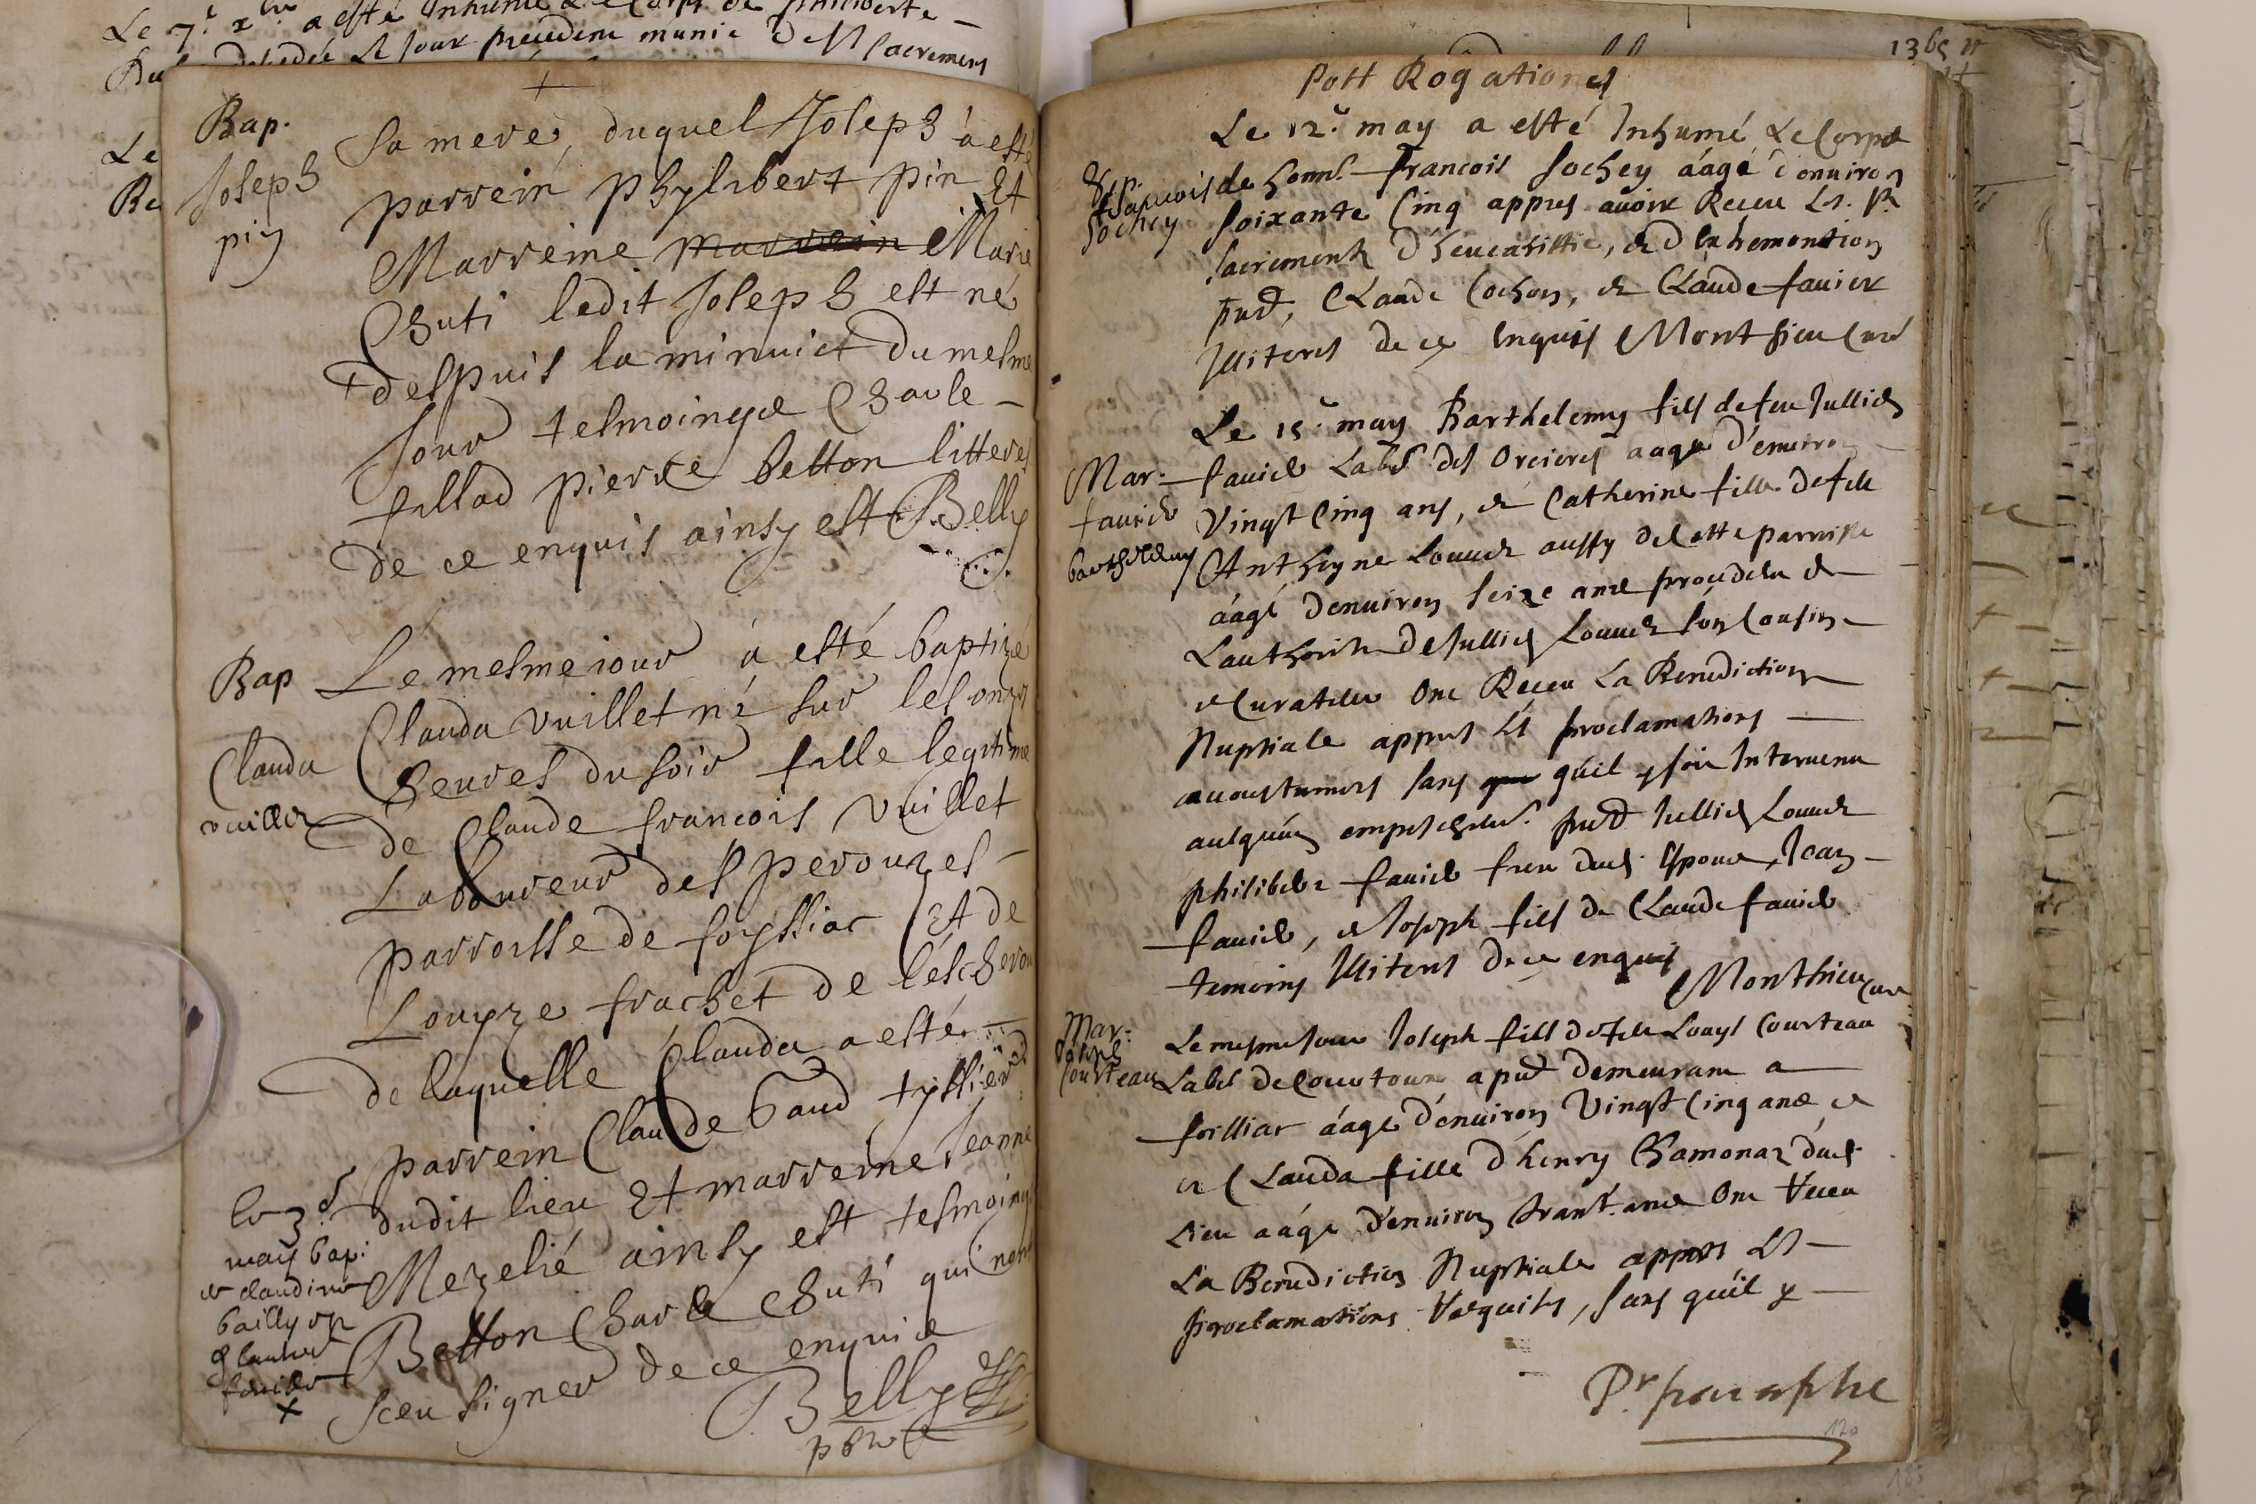 Le 7e xbre a esté Inhumé Le Corps de philiberte
decedée Le Jour precedent munie des Sacremens
Le
Bap.
Joseph
pin
sa mere, duquel Joseph à esté
parrein phylibert pin Et
Marreine marrein Marie
Chuti ledit Joseph est né
despuis la minuict du mesme
Jour tesmoingce Charle
fillod pierre betton litteres
de ce enquis ainsy est Belly
Bap
Clauda
vuillet
Le mesme iour à esté baptizé
Clauda vuillet né sur les onze
heures du soir fille legitime
de Claude francois vuillet
Laboureur des perouzes
parroisse de foyssiac Et de
Louyze frachet de l'escheron
de laquelle Clauda a esté
parrein Claude baud tyssier
dudit lieu Et marreine Jeanne
Mezelié ainsy est tesmoing
Betton Charle Chuti qui nont
sceu signer de ce enquis
Belly
pbre
le 3e
may bap:
de claudine
bailly
favier
x
1365
Post Rogationes
Sep.
francois
sochey
Le 12e may a esté Inhumé Le Corps
de honn. francois sochey áagé d'enuiron
soixante Cinq appres auoir Receu Ls. St.
sacrements d'heucaristie, et d'extremontion
pnt, Claude Cochon, et Claude fauier
Illiterés de ce enquis Monthieu Curé
Mar:
fauier
barthelemy
Le 15e may Barthelemy fils de feu Jullien
fauier Labr des Orcieres aagé d'enuiron
Vingt Cinq ans, et Catherine fille de feu
Anthoyne Louuet aussy de Cette parroisse
áagé denuiron seize ans procedent de
Lauthorité de Jullien Louuet son Cousin
et Curateur Ont Receu La Benediction
Nuptiale appres Ls proclamations
accoustumees sans que quil y soit Interuenu
aulquun empeschemt. pnt Jullien Louuet
philibert fauier frere dud. Espoux, Jean
fauier, et Joseph fils de Claude fauier
temoins Illiterés de ce enquis
Monthieu Curé
Mar:
Joseph
Courteau
Le mesme Jour Joseph fils de feu Louys Courteau
Labr de Courtoux a pnt demeurant a
foilliat áagé d'enuiron Vingt Cinq ans et
et Clauda fille d'henry Chamonaz dud.
Lieu aágé d'enuiron trant. ans Ont Receu
La Benediction Nuptiale appres Ls
proclamations Requises, sans quil y
Pr paraphe
120